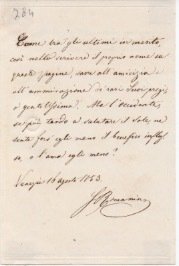 784
Come tra gli ultimi in merito,
così nello scrivere il proprio nome su
queste pagine, sacre all'amicizia
all'ammirazione di rari tuoi pregi,
o gentilissima. Ma l'Occidente,
se più tardo a salutare il Sole, ne
sente forse egli meno il benefico influsso,
o l'ama egli meno?
Venezia 16 agosto 1853.